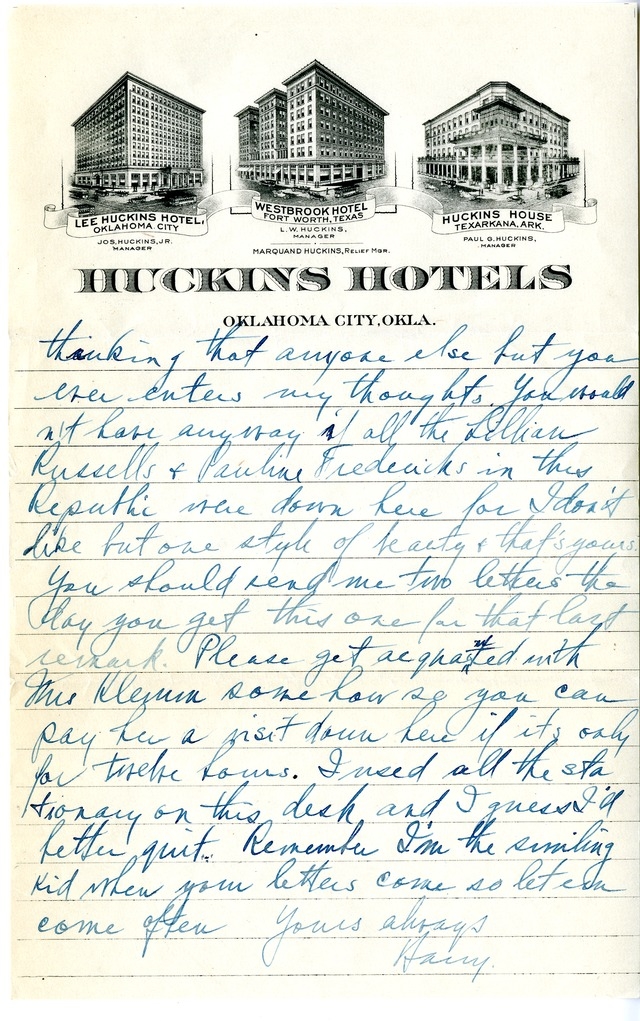 LEE HUCKINS HOTEL,
OKLAHOMA CITY
JOS. HUCKINS, JR.
MANAGER
WESTBROOK HOTEL
FORT WORTH, TEXAS
L. W. HUCKINS,
MANAGER
MARQUAND HUCKINS, RELIEF MGR.
HUCKINS HOUSE
TEXARKANA, ARK.
PAUL G. HUCKINS,
MANAGER
HUCKINS HOTELS
OKLAHOMA CITY, OKLA.
thinking that anyone else but you
ever enters my thoughts. You would
n't have anyway if all the Lillian
Russells & Pauline Fredericks in this
Republic were down here for I don't
like but one style of beauty & that's yours
You should send me two letters the
day you get this one for that last
remark. Please get acquainted with
Mrs Klemm some how so you can
pay her a visit down here if its only
for twelve hours. I used all the sta
tionary on this desk and I guess I'd
better quit. Remember I'm the smiling
kid when your letters come so let em
come often Yours always
Harry.